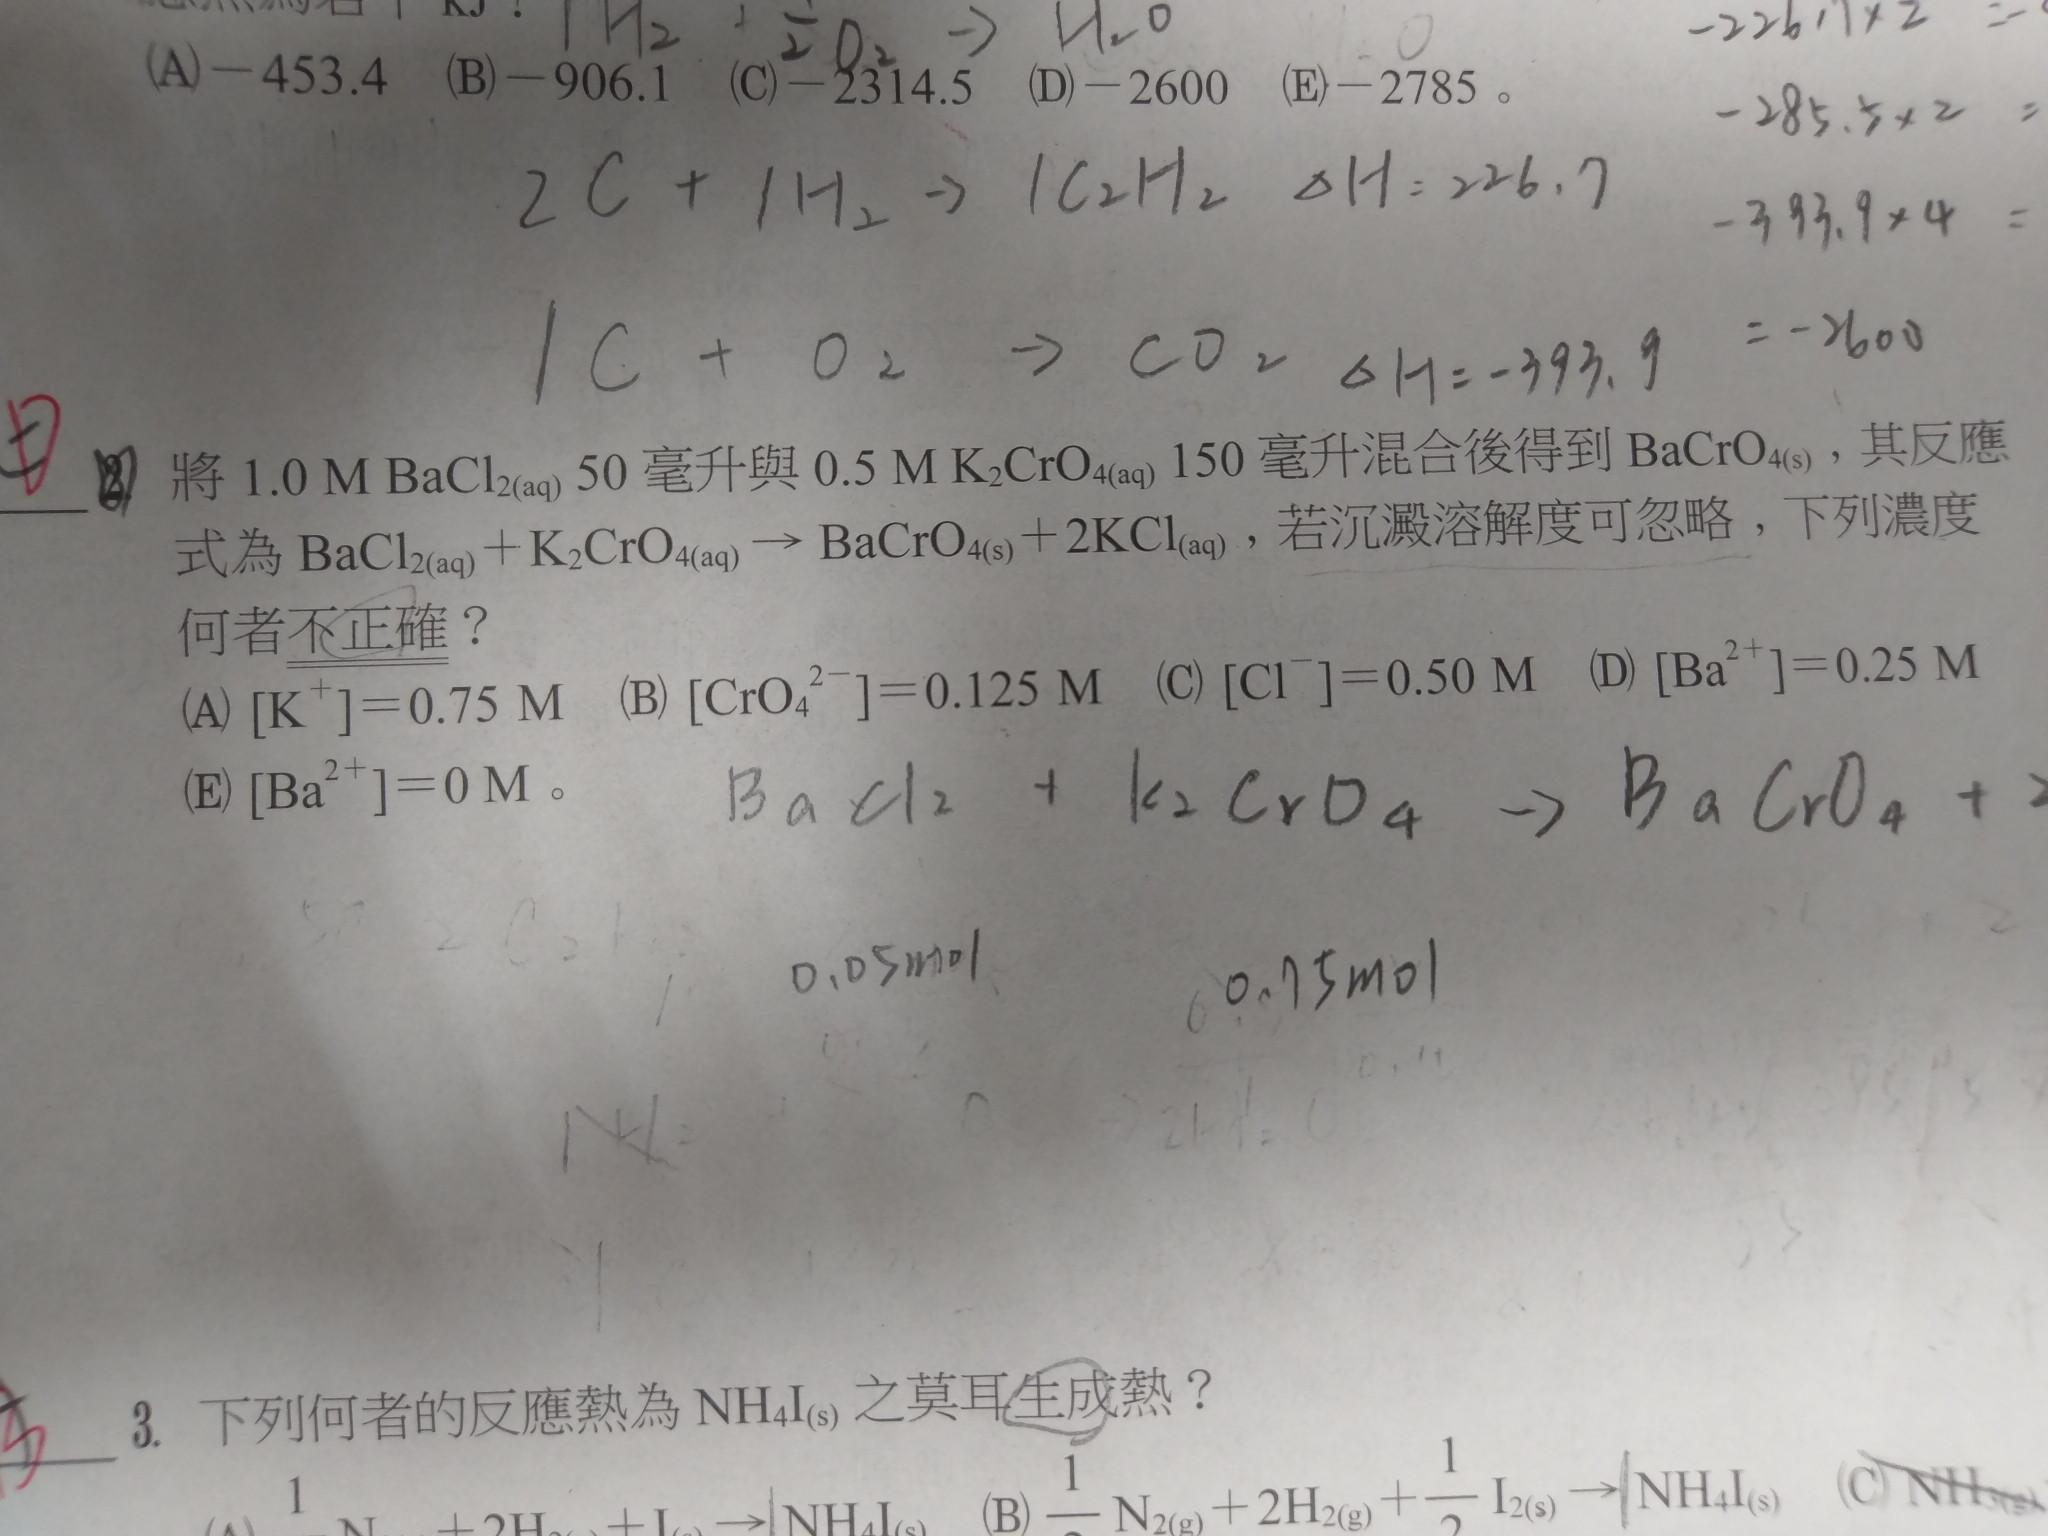 KJ？ 1 H₂ + 1/2 O₂ → H₂O
-226.7×2 =-
(A)－453.4 (B)－906.1 (C)－2314.5 (D)－2600 (E)－2785。
-285.5×2 =
2C + 1H₂ → 1C₂H₂ ΔH=226.7
-393.9×4 =
1C + O₂ → CO₂ ΔH=-393.9
=-2600
D 2. 將 1.0 M BaCl₂(aq) 50 毫升與 0.5 M K₂CrO₄(aq) 150 毫升混合後得到 BaCrO₄(s)，其反應
式為 BaCl₂(aq)＋K₂CrO₄(aq)→ BaCrO₄(s)＋2KCl(aq)，若沉澱溶解度可忽略，下列濃度
何者不正確？
(A) [K⁺]＝0.75 M (B) [CrO₄²⁻]＝0.125 M (C) [Cl⁻]＝0.50 M (D) [Ba²⁺]＝0.25 M
(E) [Ba²⁺]＝0 M。
BaCl₂ + K₂CrO₄ → BaCrO₄ + 2
0.05mol 0.75mol
3. 下列何者的反應熱為 NH₄I(s) 之莫耳生成熱？
(B) 1/2 N₂(g)＋2H₂(g)＋1/2 I₂(s)→NH₄I(s) (C)